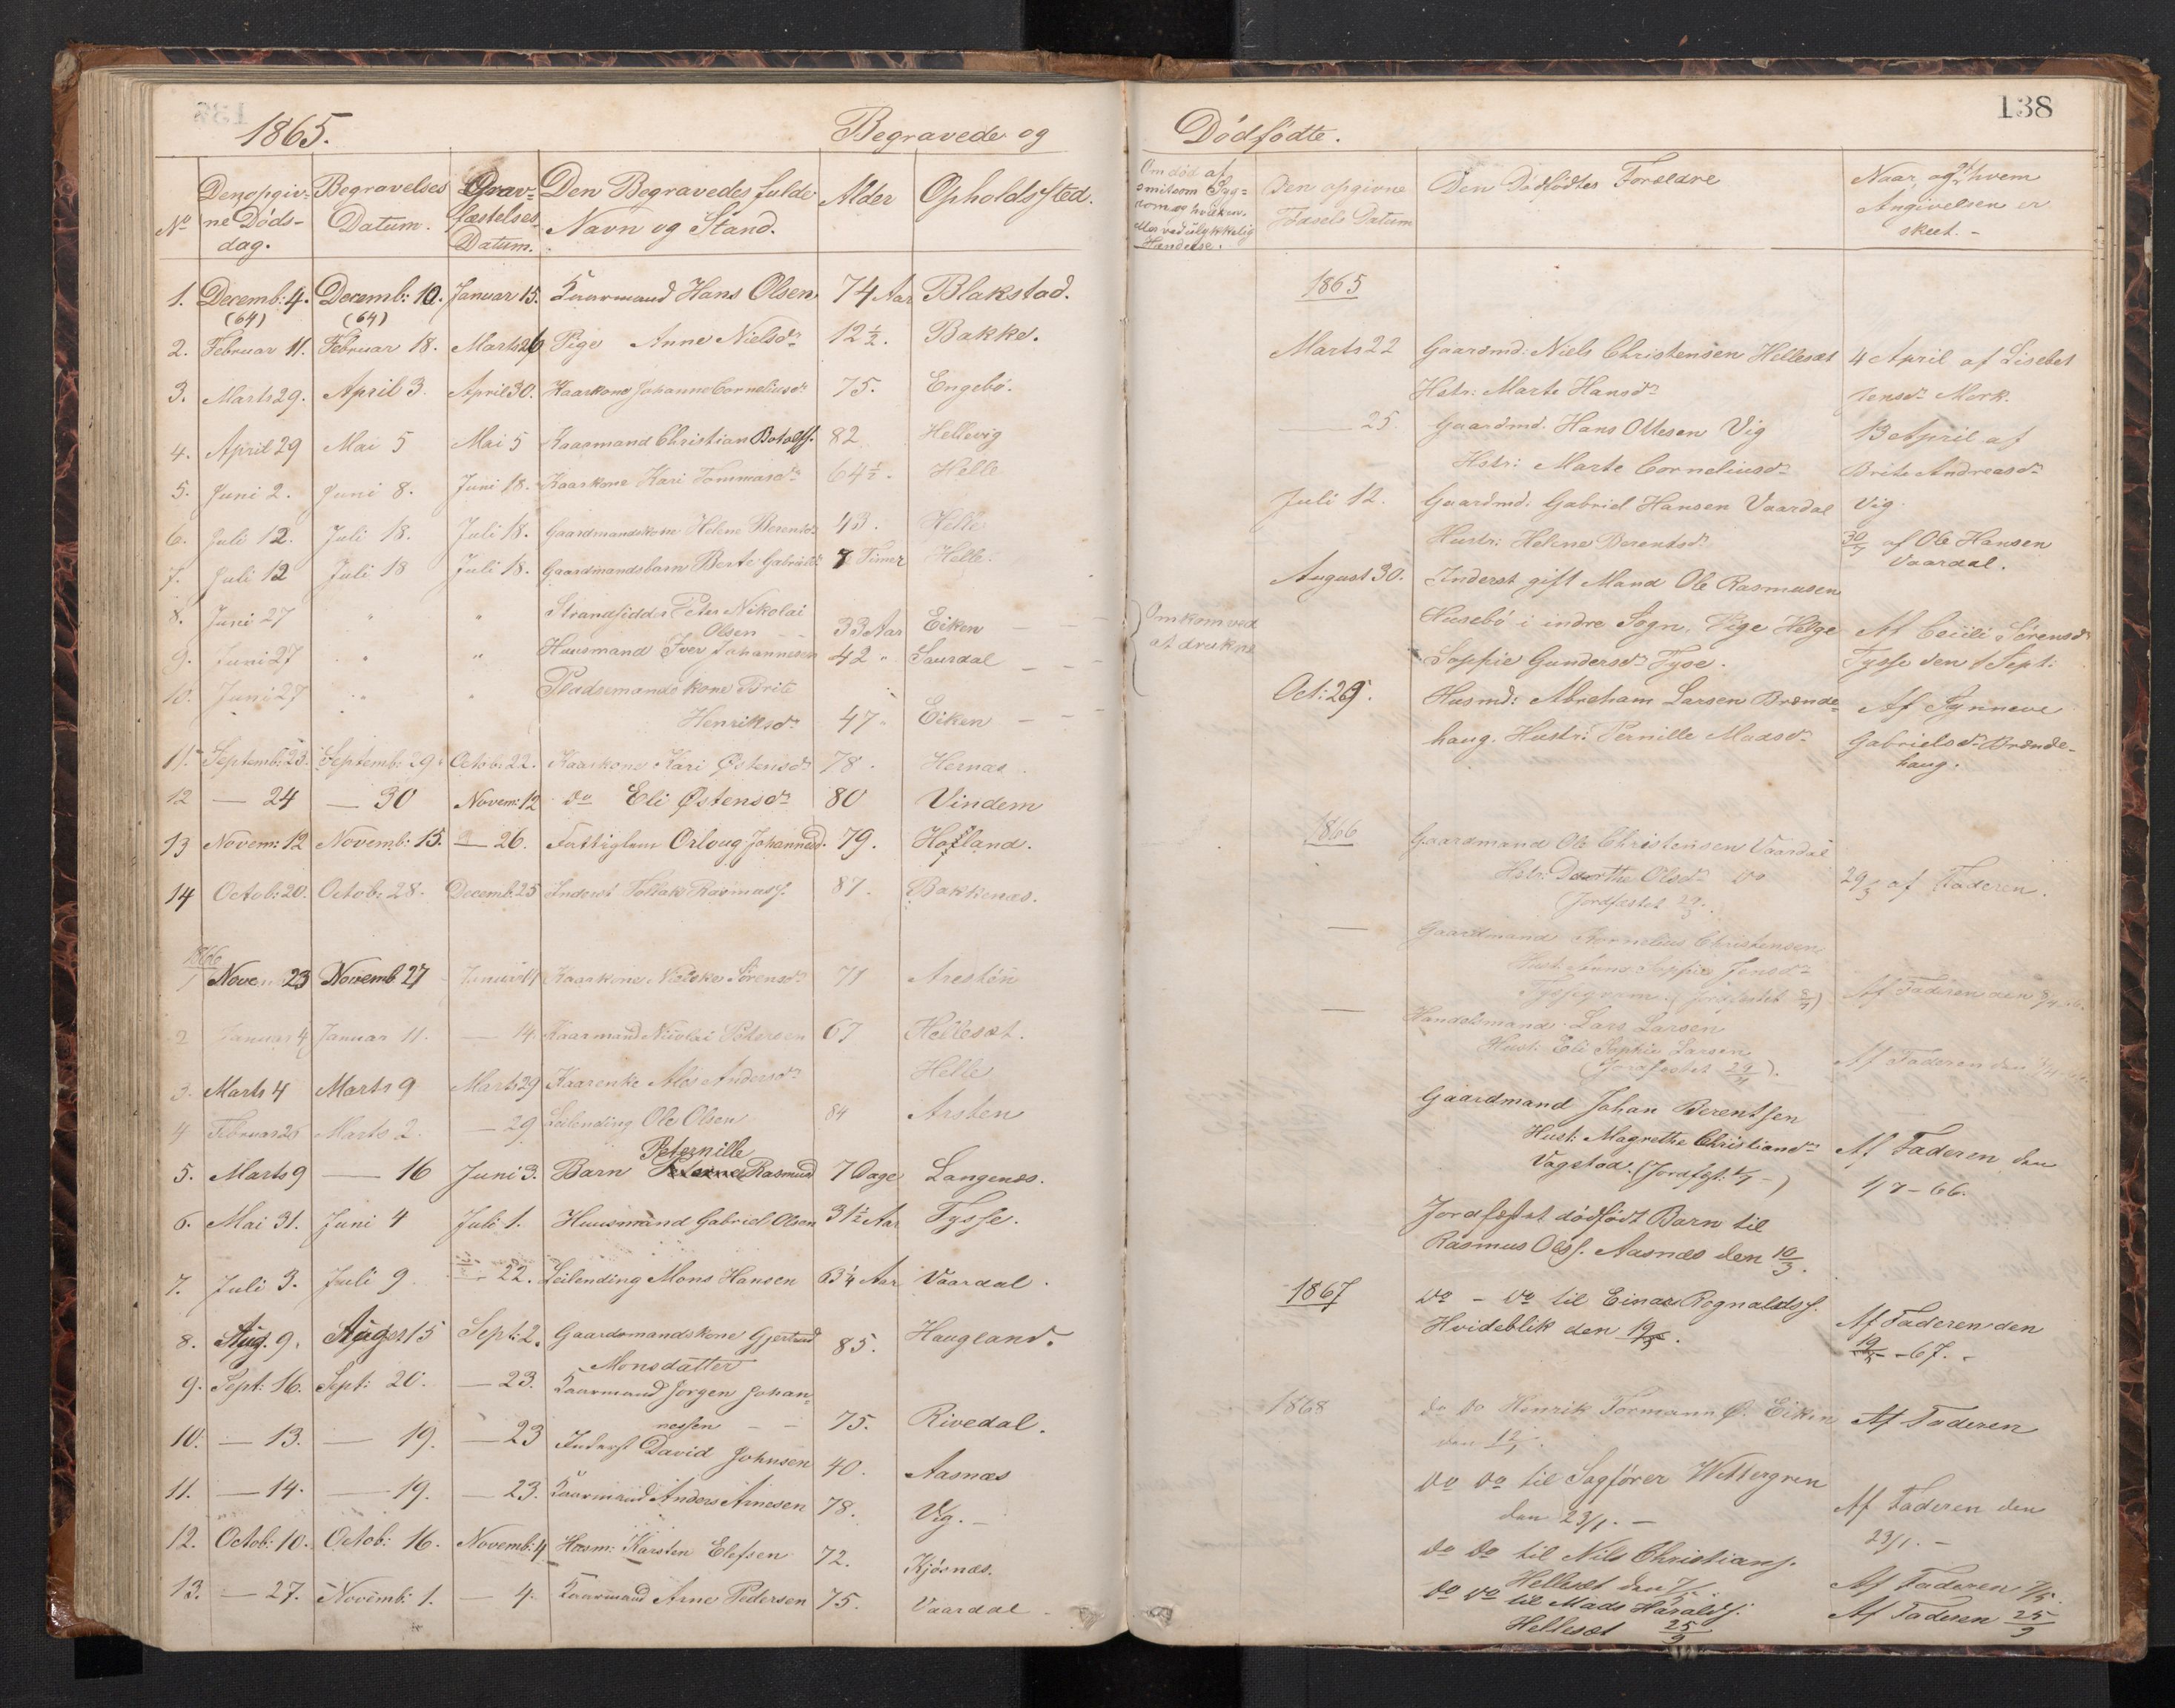 1865. Begravede og
No Den opgiv- Begravelses Grav- Den Begravedes fulde Alder Opholdssted.
ne Døds- Datum. fæstelses Navn og Stand.
dag. Datum.
1. Decemb: 4. Decemb: 10. Januar 15. Kaarmand Hans Olsen 74 Aar Blakstad.
(64) (64)
2. Februar 11. Februar 18. Marts 26 Pige Anne Nielsdr 12½. Bakke.
3. Marts 29. April 3. April 30. Kaarkone Johanne Corneliusdr 75. Engebø.
4. April 29 Mai 5 Mai 5 Kaarmand Christian Botolfs. 82 Hellevig
5. Juni 2. Juni 8. Juni 18. Kaarkone Kari Tommasdr 64½. Helle
6. Juli 12. Juli 18. Juli 18. Gaardmandskone Helene Berentsdr 43. Helle
7. Juli 12 Juli 18 Juli 18. Gaardmandsbarn Berte Gabrielsdr 7 Timer Helle.
8. Juni 27 " " Strandsidder Peter Nikolai
Olsen 33 Aar Eiken
9. Juni 27 " " Huusmand Iver Johannesen 42 " Saurdal
10. Juni 27 " " Pladsemands kone Brite
Henriksdr 47 " Eiken
11. Septemb: 23. Septemb: 29. Octob: 22. Kaarkone Kari Østensdr 78. Hernæs
12 — 24 — 30 Novem: 12 do Eli Østensdr 80 Vindem
13 Novem: 12 Novemb: 15. — 26. Fattiglem Orloug Johannesd. 79. Hofland.
14 Octob: 20. Octob: 28. Decemb. 25 Inderst Tollak Rasmuss. 87. Bakkenæs.
1866
1 Novem 23 Novemb 27 Januar 14 Kaarkone Sørensdr 71 Arestøn
2 Januar 4 Januar 11. — 14. Kaarmand Nicolai Petersen 67 Hellesæt.
3. Marts 4 Marts 9 Marts 29 Kaarenke Andersdr Helle
4 Februar 26 Marts 2. — 29 Leilending Ole Olsen 84 Arsten
Peternille
5. Marts 9 — 16 Juni 3. Barn Rasmusd 7 Dage Langenæs.
6. Mai 31. Juni 4 Juli 1. Huusmand Gabriel Olsen 31½ Aar Tysse.
7. Juli 3. Juli 9 — 22. Leilending Mons Hansen 63¼ Aar Vaardal.
8. Aug. 9. August 15 Sept: 2. Gaardsmandskone Gjertrud 85. Haugland.
Monsdatter
9. Sept: 16. Sept: 20. — 23. Kaarmand Jørgen Johan-
nessen 75. Rivedal.
10. — 13. — 19. — 23 Inderst David Johnsen 40. Aasnæs
11. — 14. — 19. — 23. Kaarmand Anders Arnesen 78. Vig. —
12. Octob: 10. Octob: 16. Novemb: 4 Husm: Karsten Elefsen 72. Kjøsnæs.
13. — 27. Novemb: 1. — 4. Kaarmand Arne Pedersen 75. Vaardal
138
Dødfødte.
Om død af Den opgivne Den Dødfødtes Forældre Naar, og af hvem
smitsom Syg- Fødsels Datum Angivelsen er
dom og hvilken skeet. -
eller ved ulykkelig
Hændelse.
1865
Marts 22 Gaardmd: Niels Christensen Hellesæt 4 April af Lisebet
Hstr: Marte Hansdr Jensdr Mork.
— 25. Gaardmd. Hans Ottesen Vig 13 April af
Hstr: Marte Corneliusdr Brite Andreasdr
Juli 12. Gaardmd: Gabriel Hansen Vaardal Vig
Hustr: Helene Berentsdr 30/7 af Ole Hansen
Vaardal.
August 30. Inderst gift Mand Ole Rasmusen
Omkom ved Husebø i indre Sogn, Pige Helge Af Cecili Sørensdr
at drukne Sophie Gundersdr Tyse. Tysse den 1 Sept:
Oct: 29. Husmd: Abraham Larsen Brænde- Af Synneve
haug. Hustr: Pernille Madsdr Gabrielsdr Brænde-
haug.
1866 Gaardmand Ole Christensen Vaardal
Hstr. Dorthe Olsdr do 29/3 af Faderen.
(Jordfæstet 29/3.
— Gaardmand Kornelius Christensen
Hust: Anne Sophie Jensdr
(jordfæstet 8/4) Af Faderen den 8/4 66.
— Handelsmand Lars Larsen
Hust: Eli Sophie Larsen
(Jordfæstet 29/4). Af Faderen den
Gaardmand Johan Berentsen
Hust: Magrethe Christiandr Af Faderen den
Vagstad. (Jordfst: 1/7 -) 1/7 - 66.
Jordfæstet dødfødt Barn til
Rasmus Olss. Aasnæs den 10/3.
1867 do - do til Einar Rognaldss.
Hvideblik den 19/5. Af Faderen den
19/5 - 67. -
1868 do do Henrik Tormann Ø. Eiken Af Faderen
den 12/1.
do do til Sagfører Wettergren
den 23/1. — Af Faderen den
23/1. -
do do til Nils Christians.
Hellesæt den 7/5. Af Faderen 7/5.
do do til Mads Haralds. Af Faderen 25/9
Hellesæt 25/9